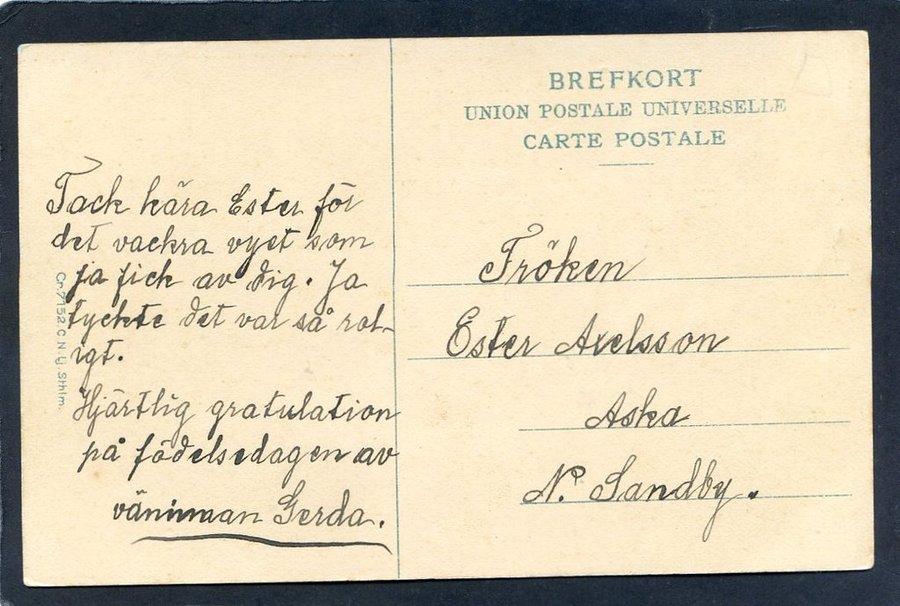 Tack kära Ester för
det vackra vyet som
ja fick av dig. Ja
tyckte det var så rol-
igt.
Hjärtlig gratulation
på födelsedagen av
väninnan Gerda.
Cn. 7152 C. N. Lj. Sthlm.
BREFKORT
UNION POSTALE UNIVERSELLE
CARTE POSTALE
Fröken
Ester Axelsson
Aska
N. Sandby.